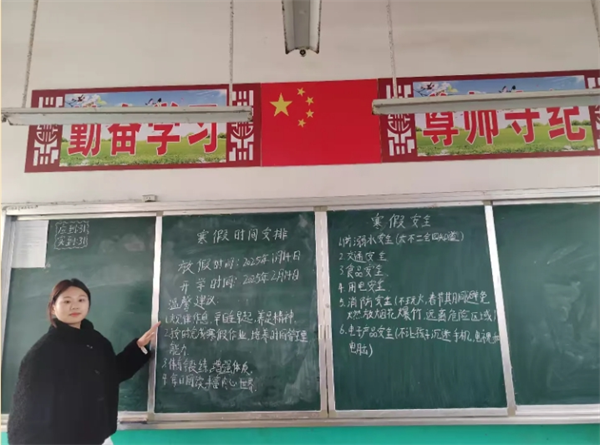 勤奋学习
尊师守纪
应到:31
实到:31
寒假时间安排
放假时间:2025年1月14日
开学时间:2025年2月14号
温馨建议
1.规律作息,早睡早起,养足精神。
2.按时完成寒假作业,培养时间管理
能力
3.体育锻练,增强体质
寒假安全
1.防溺水安全
2.交通安全
3.食品安全
4.用电安全
5.消防安全(不玩火,春节期间避免
燃放烟花爆竹,远离危险区域
6.电子产品安全(不让孩子沉迷手机,电视
电脑)